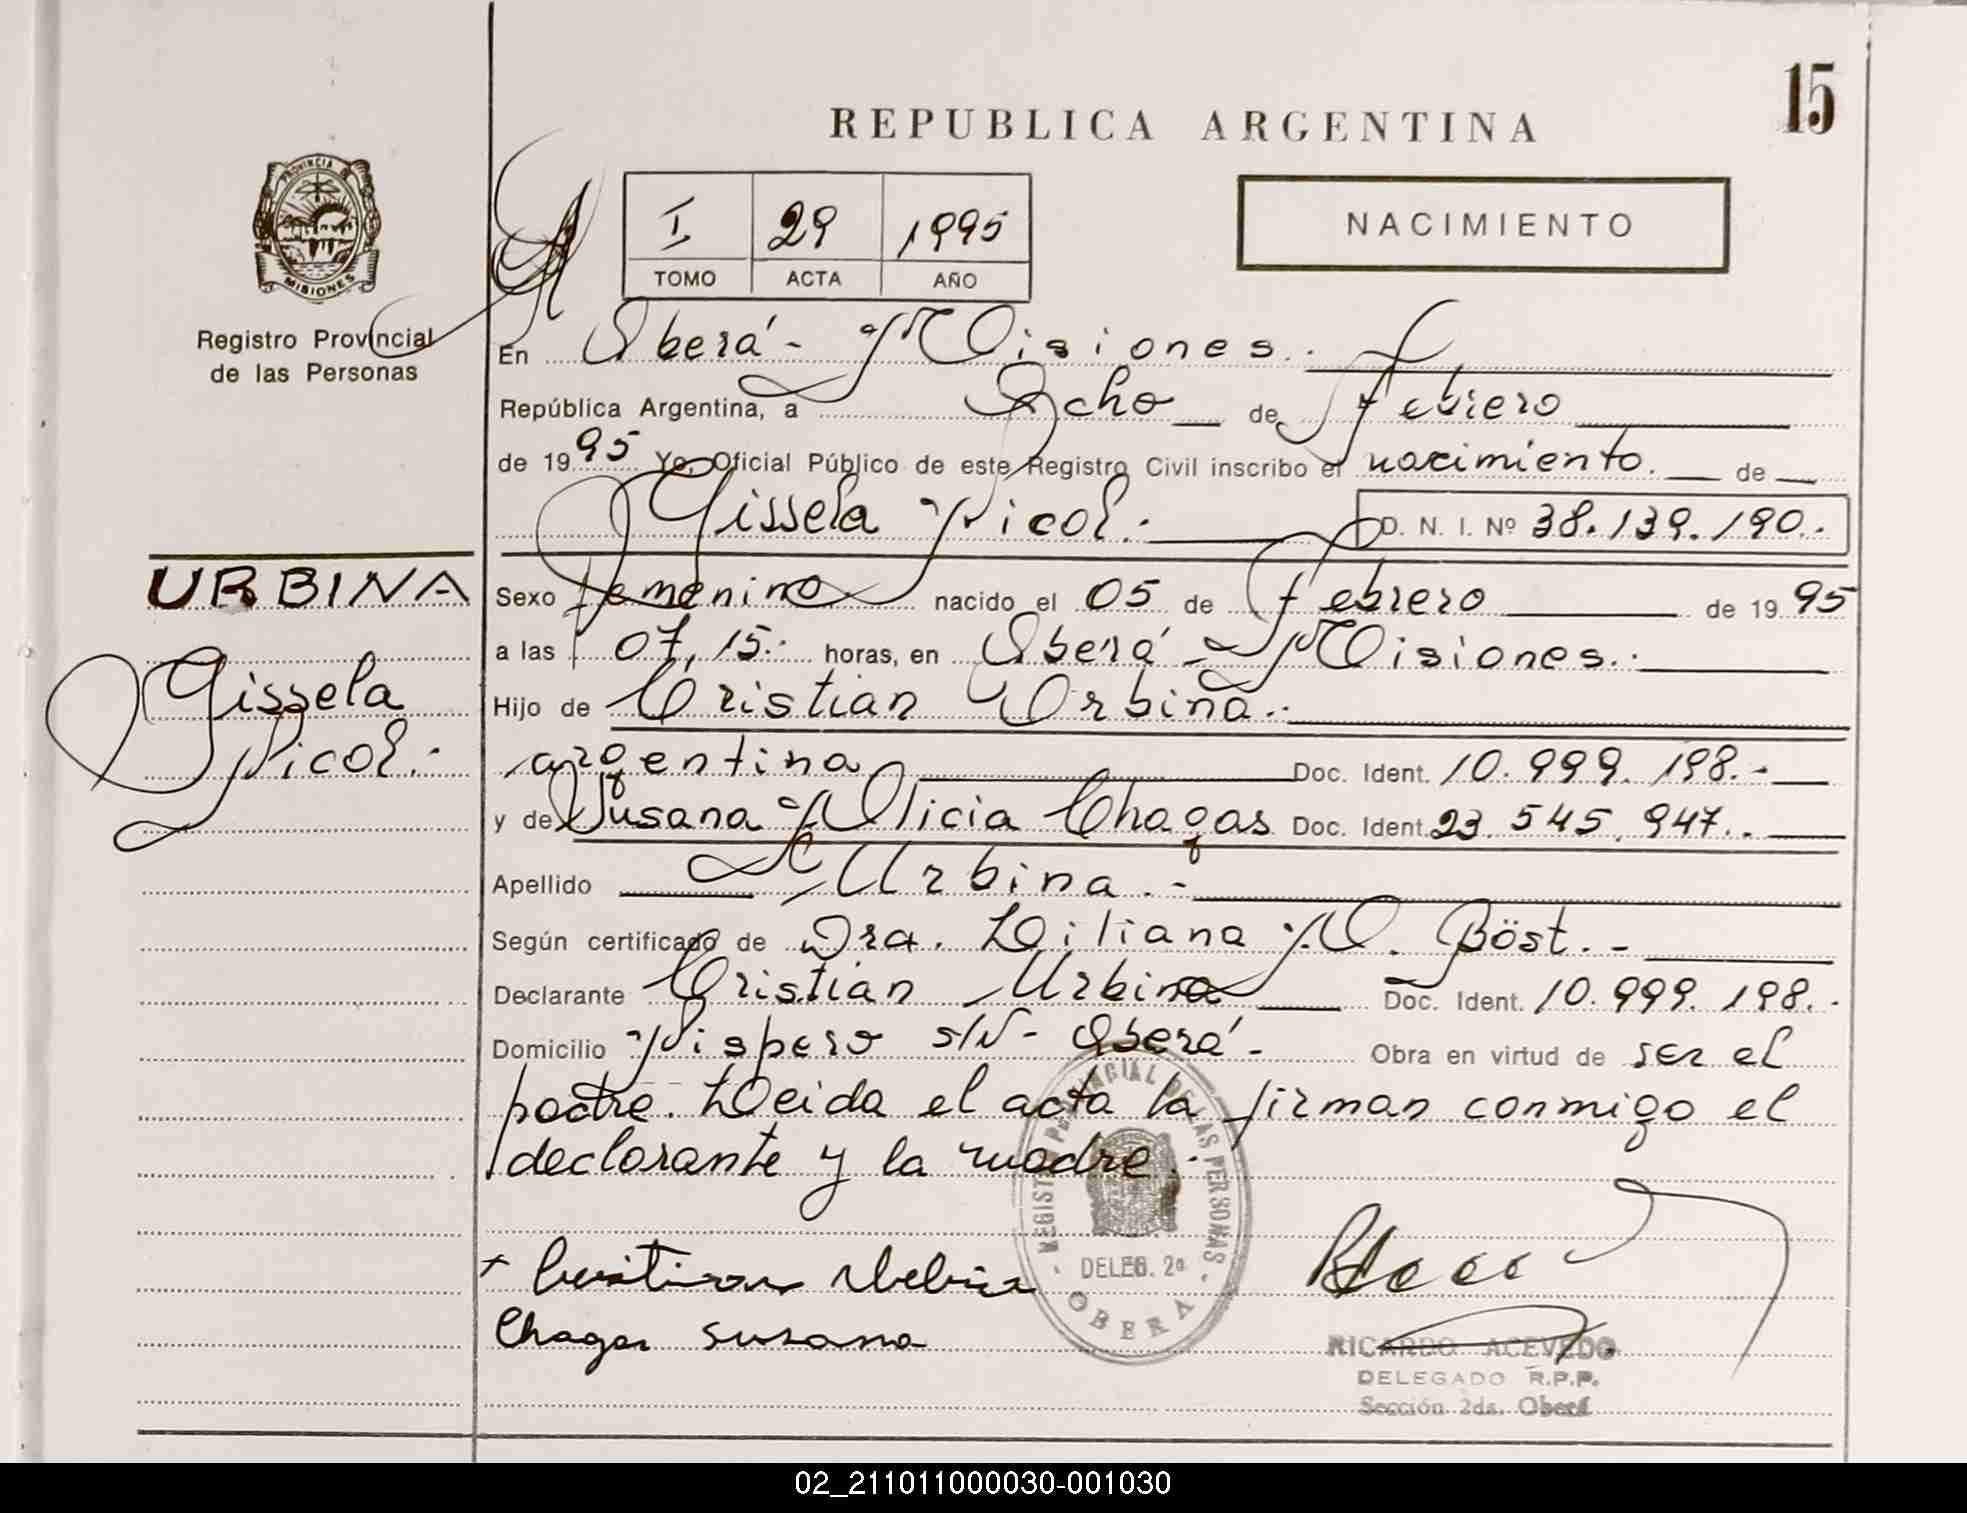 15
REPUBLICA ARGENTINA
PROVINCIA DE
MISIONES
Registro Provincial
de las Personas
I 29 1995
TOMO ACTA AÑO
NACIMIENTO
En Oberá - Misiones.
República Argentina, a Ocho de Febrero
de 1995 Yo, Oficial Público de este Registro Civil inscribo el nacimiento. de
Gissela Nicol. D. N. I. Nº 38.139.190.-
URBINA
Gissela
Nicol.-
Sexo femenino nacido el 05 de Febrero de 1995
a las 07,15.- horas, en Oberá - Misiones.-
Hijo de Cristian Urbina.-
argentina Doc. Ident. 10.999.198.-
y de Susana Alicia Chagas Doc. Ident. 23.545.947.-
Apellido Urbina.-
Según certificado de Dra. Liliana M. Böst.-
Declarante Cristian Urbina Doc. Ident. 10.999.198.-
Domicilio Nispero s/N - Oberá - Obra en virtud de ser el
padre. Leida el acta la firman conmigo el
declarante y la madre.-
REGISTRO PROVINCIAL DE LAS PERSONAS
DELEG. 2ª
OBERA
+ Cristian Urbina
Chagas Susana
RICARDO ACEVEDO
DELEGADO R.P.P.
Sección 2da. Oberá
02_211011000030-001030